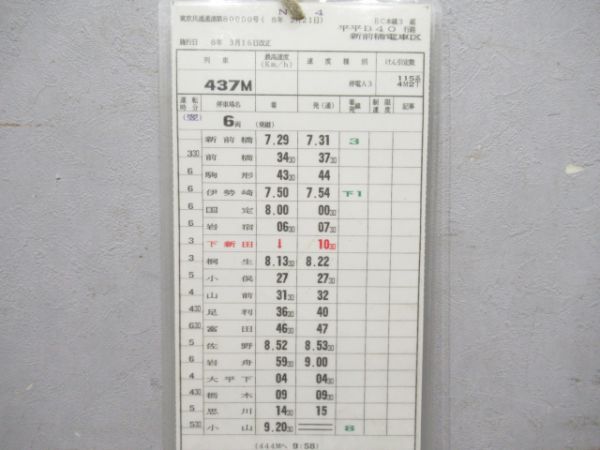 N 4
施行日 6年 3月16日改正
平平B40 行路
新前橋電車区
列車 最高速度(Km/h) 速度種別 けん引定数
437M 停電A3 115系 4M2T
運転時分 停車場名 着 発(通) 着発線 制限速度 記事
(翌) 6両
新前橋 7.29 7.31 3
330 前橋 34 30 37 30
6 駒形 43 30 44
6 伊勢崎 7.50 7.54 下1
6 国定 8.00 00 30
6 岩宿 06 30 07 30
3 下新田 ↓ 10 30
3 桐生 8.13 30 8.22
5 小俣 27 27 30
4 山前 31 30 32
430 足利 36 30 40
630 富田 46 30 47
5 佐野 8.52 8.53 30
6 岩舟 59 30 9.00
4 大平下 04 04 30
430 栃木 09 09 30
5 思川 14 30 15
530 小山 9.20 30 8
(444Mへ 9:58)